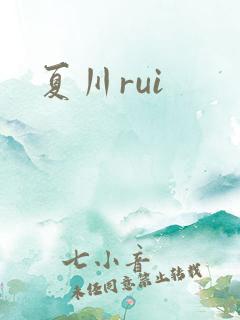 夏川rui
七小音
未经同意禁止转载